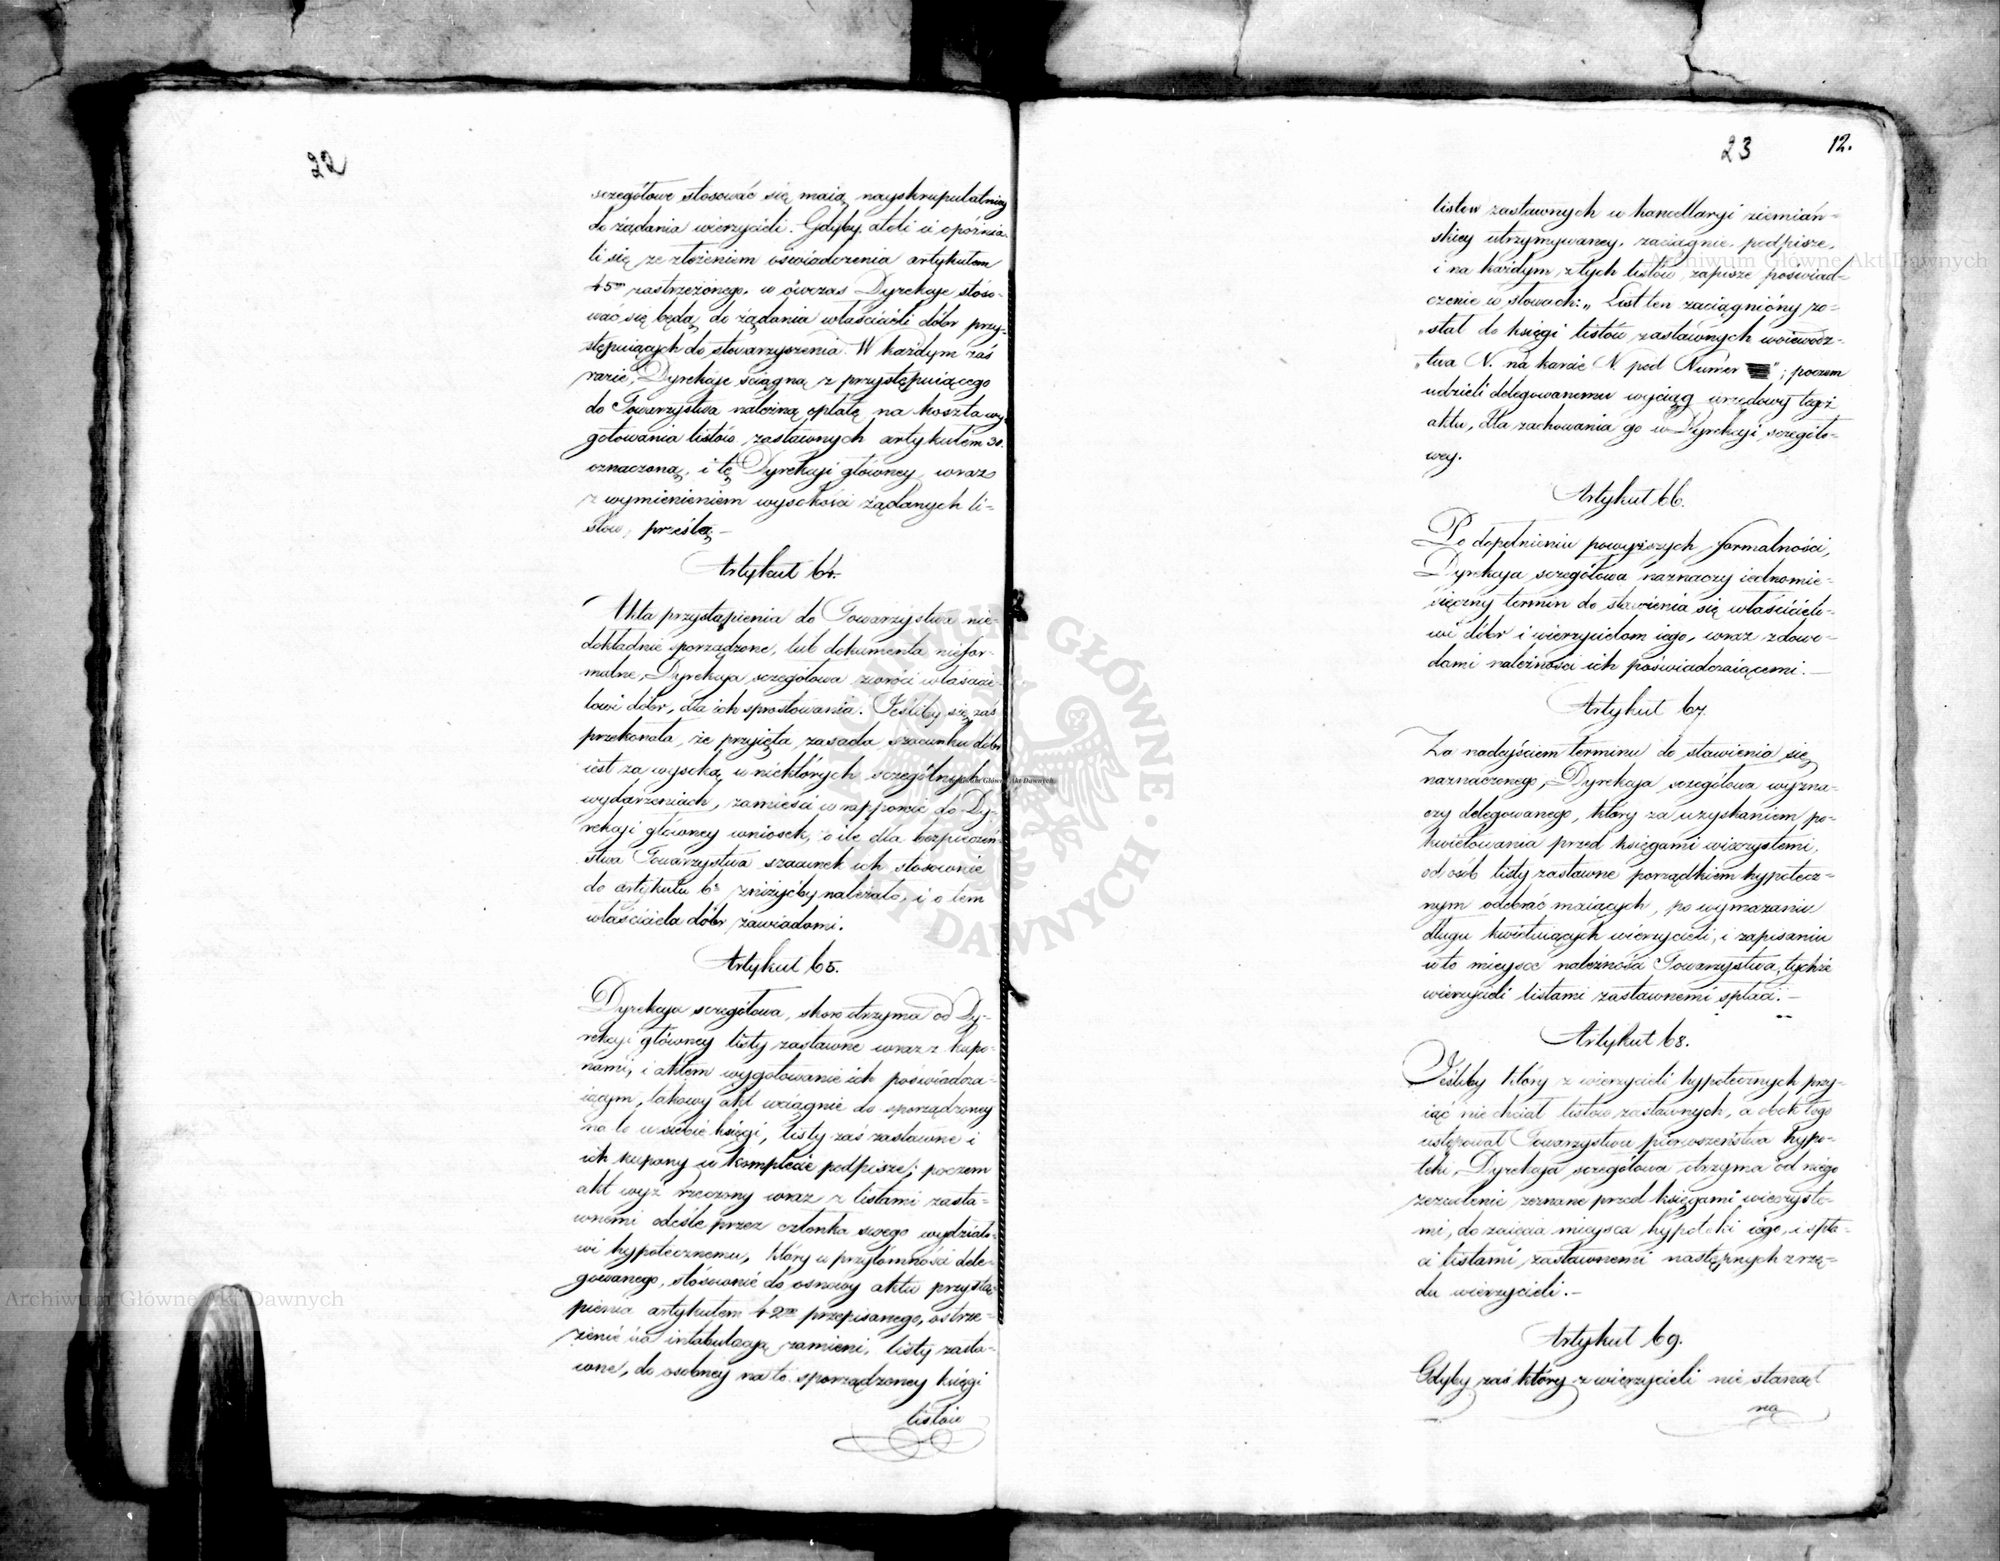 22
szczegółowe stosować się maią nayskrupulatniey
do żądania wierzycieli. Gdyby atoli ci opóźnia-
li się ze złożeniem oświadczenia artykułem
45m zastrzeżonego, w ówczas Dyrekcje stoso-
wać się będą do żądania właścicieli dóbr przy-
stępuiących do stowarzyszenia. W każdym zaś
razie, Dyrekcje ściągną z przystępuiącego
do Towarzystwa należną opłatę na koszta wy-
gotowania listów zastawnych artykułem 30.
oznaczoną, i tę Dyrekcji główney wraz
z wymienieniem wysokości żądanych li-
stów, prześlą.—
Artykuł 64.
Akta przystąpienia do Towarzystwa nie-
dokładnie sporządzone, lub dokumenta niefor-
malne, Dyrekcja szczegółowa zwróci właścicie-
lowi dóbr, dla ich sprostowania. Jeśliby się zaś
przekonała, że przyjęta zasada szacunku dóbr
iest za wysoką w niektórych szczególnych
wydarzeniach, zamieści w rapporcie do Dy-
rekcji główney wniosek, o ile dla bezpieczeń-
stwa Towarzystwa szacunek ich stosownie
do artykułu 6o zniżyćby należało, i o tem
właściciela dóbr zawiadomi.
Artykuł 65.
Dyrekcja szczegółowa, skoro otrzyma od Dy-
rekcji główney listy zastawne wraz z kupo-
nami, i aktem wygotowanie ich poświadcza-
iącym, takowy akt wciągnie do sporządzoney
na to u siebie księgi, listy zaś zastawne i
ich kupony w komplecie podpisze; poczem
akt wyż rzeczony wraz z listami zasta-
wnemi odeśle przez członka swego wydziało-
wi hypotecznemu, który w przytomności dele-
gowanego, stosownie do osnowy aktu przystą-
pienia artykułem 42m przepisanego, ostrze-
żenie na intabulacją zamieni, listy zasta-
wne, do osobney na to sporządzoney księgi
listów
23 12.
listów zastawnych w kancellaryi ziemiań-
skiey utrzymywaney, zaciągnie, podpisze,
i na każdym z tych listów zapisze poświad-
czenie w słowach: „List ten zaciągniony zo-
„stał do księgi listów zastawnych woiewódz-
„twa N. na karcie N. pod Numer "; poczem
udzieli delegowanemu wyciąg urzędowy tegoż
aktu, dla zachowania go w Dyrekcji szczegóło-
wey.
Artykuł 66.
Po dopełnieniu powyższych formalności,
Dyrekcja szczegółowa naznaczy iednomie-
sięczny termin do stawienia się właścicielo-
wi dóbr i wierzycielom iego, wraz z dowo-
dami należności ich poświadczaiącemi.—
Artykuł 67.
Za nadejściem terminu do stawienia się
naznaczonego, Dyrekcja szczegółowa wyzna-
czy delegowanego, który za uzyskaniem po-
kwitowania przed księgami wieczystemi,
od osób listy zastawne porządkiem hypotecz-
nym odebrać maiących, po wymazaniu
długu kwituiących wierzycieli, i zapisaniu
w to mieysce należności Towarzystwa, tychże
wierzycieli listami zastawnemi spłaci.—
Artykuł 68.
Jeśliby który z wierzycieli hypotecznych przy-
iąć nie chciał listów zastawnych, a obok tego
ustępował Towarzystwu pierwszeństwa hypo-
teki, Dyrekcja szczegółowa otrzyma od niego
zezwolenie zeznane przed księgami wieczyste-
mi, do zaięcia mieysca hypoteki iego, i spła-
ci listami zastawnemi następnych z rzę-
du wierzycieli.—
Artykuł 69.
Gdyby zaś który z wierzycieli nie stanął
na